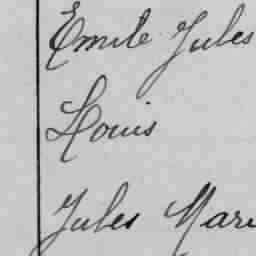 Emile Jules
Louis
Jules Mari